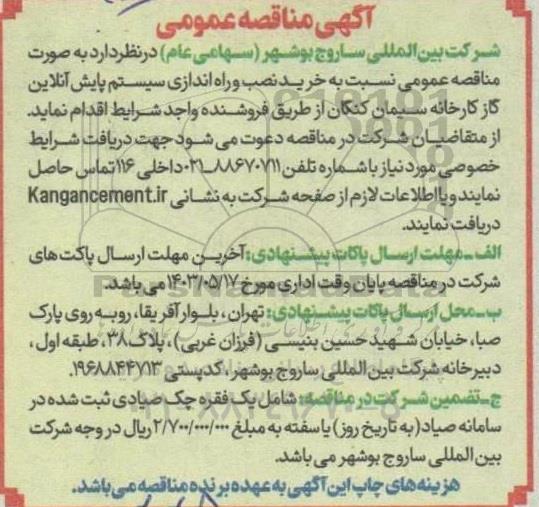 آگهی مناقصه عمومی
شرکت بین المللی ساروج بوشهر (سهامی عام) در نظر دارد به صورت
مناقصه عمومی نسبت به خرید نصب و راه اندازی سیستم پایش آنلاین
گاز کارخانه سیمان کنگان از طریق فروشنده واجد شرایط اقدام نماید.
از متقاضیان شرکت در مناقصه دعوت می شود جهت دریافت شرایط
خصوصی مورد نیاز با شماره تلفن ۸۸۶۷۰۷۱۱-۰۲۱ داخلی ۱۱۶ تماس حاصل
نمایند و یا اطلاعات لازم از صفحه شرکت به نشانی Kangancement.ir
دریافت نمایند.
الف-مهلت ارسال پاکات پیشنهادی: آخرین مهلت ارسال پاکت های
شرکت در مناقصه پایان وقت اداری مورخ ۱۴۰۳/۰۵/۱۷ می باشد.
ب-محل ارسال پاکات پیشنهادی: تهران ، بلوار آفریقا، روبه روی پارک
صبا، خیابان شهید حسین بنیسی (فرزان غربی)، پلاک ۳۸، طبقه اول ،
دبیرخانه شرکت بین المللی ساروج بوشهر ، کدپستی ۱۹۶۸۸۴۴۷۱۳.
ج-تضمین شرکت در مناقصه: شامل یک فقره چک صیادی ثبت شده در
سامانه صیاد (به تاریخ روز) یا سفته به مبلغ ۲/۷۰۰/۰۰۰/۰۰۰ ریال در وجه شرکت
بین المللی ساروج بوشهر می باشد.
هزینه های چاپ این آگهی به عهده برنده مناقصه می باشد.
ParsNamadData